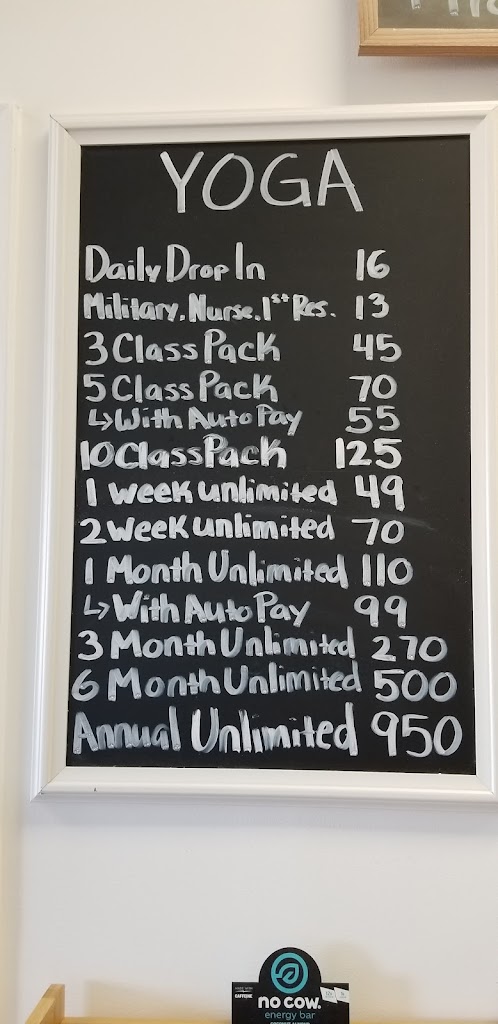 YOGA
Daily Drop In 16
Military, Nurse, 1st Res. 13
3 Class Pack 45
5 Class Pack 70
↳ With Auto Pay 55
10 Class Pack 125
1 week unlimited 49
2 week unlimited 70
1 Month Unlimited 110
↳ With Auto Pay 99
3 Month Unlimited 270
6 Month Unlimited 500
Annual Unlimited 950
CAFFEINE
no cow.
energy bar